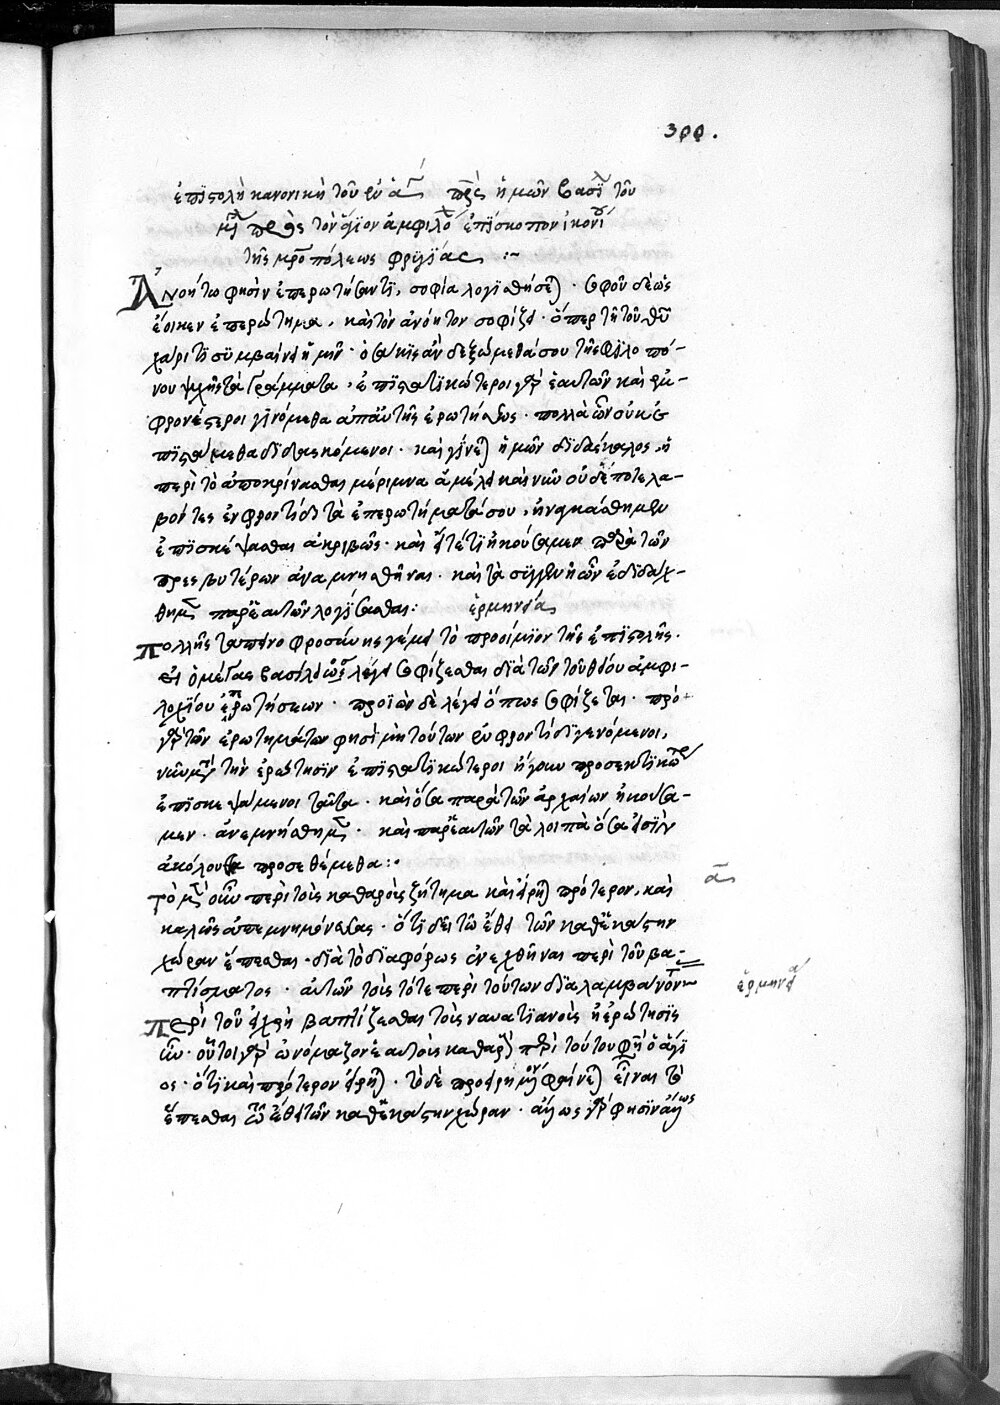 399.
ἐπιστολὴ κανονικὴ τοῦ ἐν ἁγ πρς ἡμῶν βασιλ τοῦ
μγ πρὸς τὸν ἅγιον ἀμφιλο ἐπίσκοπον ἰκονί
τῆς μρο πόλεως φρυγίας :~
Ἀνοήτω φησὶν ἐπερωτήσαντι, σοφία λογισθήσε). σοφοῦ δὲ ὡς
ἔοικεν ἐπερώτημα, καὶ τὸν ἀνόητον σοφίζει· ὅπερ τῆ τοῦ θυ
χάριτι συμβαίνει ἡμῖν· ὁσάκις ἂν δεξώμεθα σου τῆς φιλοπό-
νου ψχῆς τὰ γράμματα, ἐπιστατικώτεροι γὰρ ἑαυτῶν καὶ ἐμ-
φρονέστεροι γινόμεθα ἀπ' αὐτῆς ἐρωτήσεως· πολλὰ ὧν οὐκ ἐ
πιστάμεθα διδασκόμενοι· καὶ γίνε) ἡμῶν διδάσκαλος, ἡ
περὶ τὸ ἀποκρίνασθαι μέριμνα ἀμέλει καὶ νῦν οὐδέποτε λα-
βόντες ἐν φροντίδι τὰ ἐπερωτήματά σου, ἠναγκάσθημεν
ἐπισκέψασθαι ἀκριβῶς· καὶ εἴτέ τι ἠκούσαμεν παρὰ τῶν
πρεσβυτέρων ἀναμνησθῆναι· καὶ τὰ συγγενῆ ὧν ἐδιδάχ-
θημ παρ' ἑαυτῶν λογίσασθαι: ἑρμηνεία
πολλῆς ταπεινοφροσύνης γέμει τὸ προοίμιον τῆς ἐπιστολῆς.
εἰ ὁ μέγας βασίλειος λέγει σοφίζεσθαι διὰ τῶν τοῦ θείου ἀμφι-
λοχίου ἐπερωτήσεων· προϊὼν δὲ λέγει ὅπως σοφίζεται· πρὸ
γὰρ τῶν ἐρωτημάτων φησὶ μὴ τούτων ἐν φροντίδι γενόμενοι,
νῦν μτ τὴν ἐρώτησιν ἐπιστατικώτεροι ἤγουν προσεκτικώτερ
ἐπισκεψάμενοι ταῦτα· καὶ ὅσα παρὰ τῶν ἀρχαίων ἠκούσα-
μεν· ἀνεμνήσθημ· καὶ παρ' ἑαυτῶν τὰ λοιπὰ ὅσα εἰσὶν
ἀκόλουθα προσεθέμεθα:·
ᾱ
τὸ μ οὖν περὶ τοὺς καθαροὺς ζήτημα καὶ εἴρη) πρότερον, καὶ
καλῶς ἀπεμνημόνευσας· ὅτι δεῖ τῶ ἔθει τῶν καθ' ἑκάστην
χώραν ἕπεσθαι· διὰ τὸ διαφόρως ἐνεχθῆναι περὶ τοῦ βα-
πτίσματος· αὐτῶν τοὺς τότε περὶ τούτων διαλαμβάνοντ
ἑρμηνεία
περὶ τοῦ εἰ χρὴ βαπτίζεσθαι τοὺς ναυατιανοὺς ἡ ἐρώτησις
ἦν· οὗτοι γὰρ ὠνόμαζον ἑαυτοὺς καθαρ) περὶ τούτου φη ὁ ἅγι
ος· ὅτι καὶ πρότερον εἴρη)· τὸ δὲ προειρημον φαίνε) εἶναι τὸ
ἕπεσθαι τῶ ἔθει τῶν καθ' ἑκάστην χώραν· ἄλλως γὰρ φησὶν ἄλλως